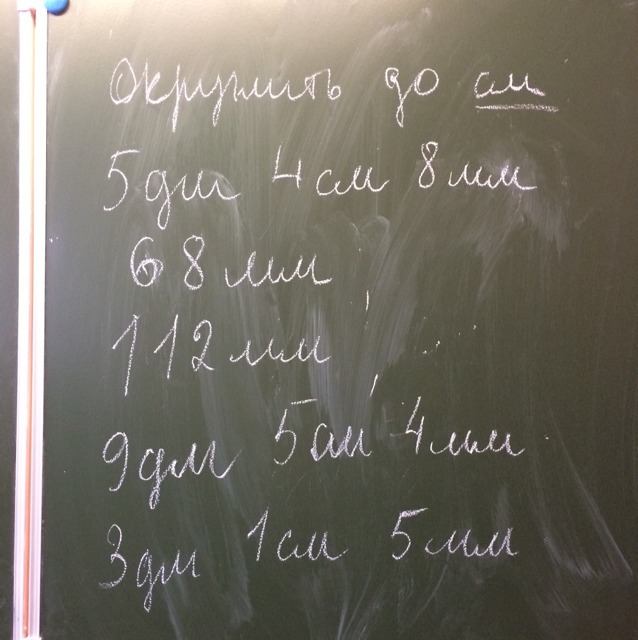 Округлить до см
5дм 4см 8мм
68мм
112мм
9дм 5см 4мм
3дм 1см 5мм